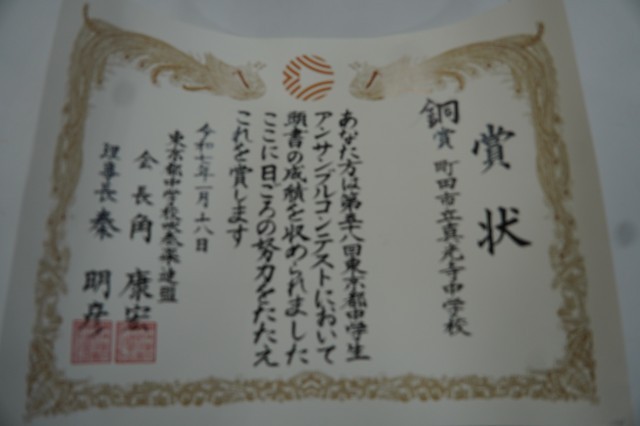 賞状
銅賞 町田市立真光寺中学校
あなた方は第五八回東京都中学生
アンサンブルコンテストにおいて
頭書の成績を収められました
ここに日ごろの努力をたたえ
これを賞します
令和七年一月十八日
東京都中学校吹奏楽連盟
会長 角 康宏
理事長 秦 明彦